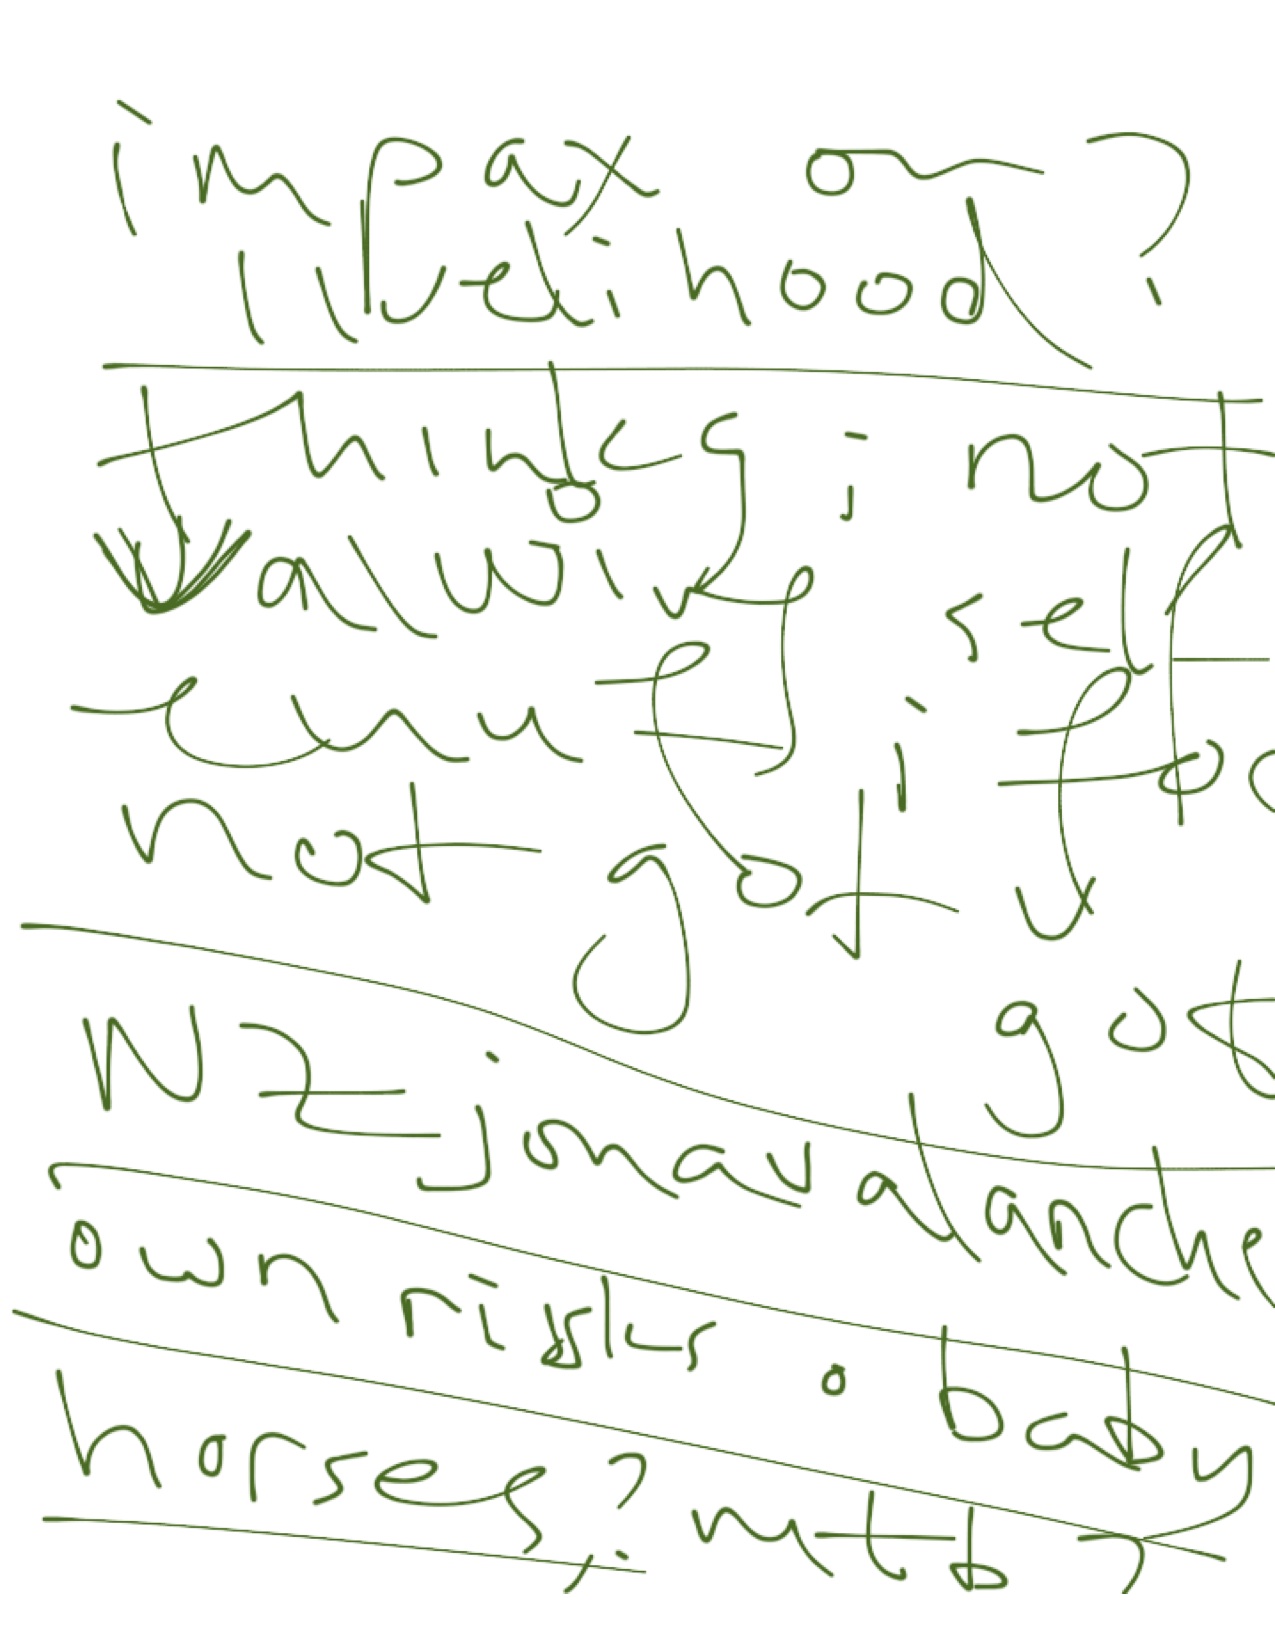 impax on ?
livelihood
thinks i not
valuing self
enuff i foc
not got u
got
NZ jon avalanche
own risks . baby
horses, ? mtb ?